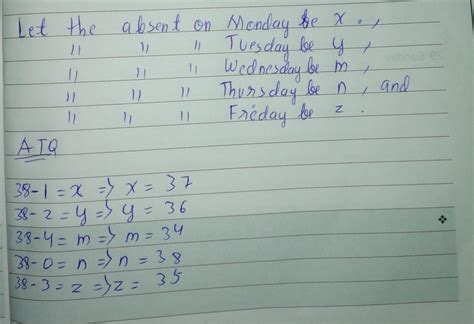 Let the absent on Monday be x.,
" " " Tuesday be y,
" " " Wednesday be m,
" " " Thursday be n, and
" " " Friday be z.
ATQ
38-1 = x => x = 37
38-2 = y => y = 36
38-4 = m => m = 34
38-0 = n => n = 38
38-3 = z => z = 35